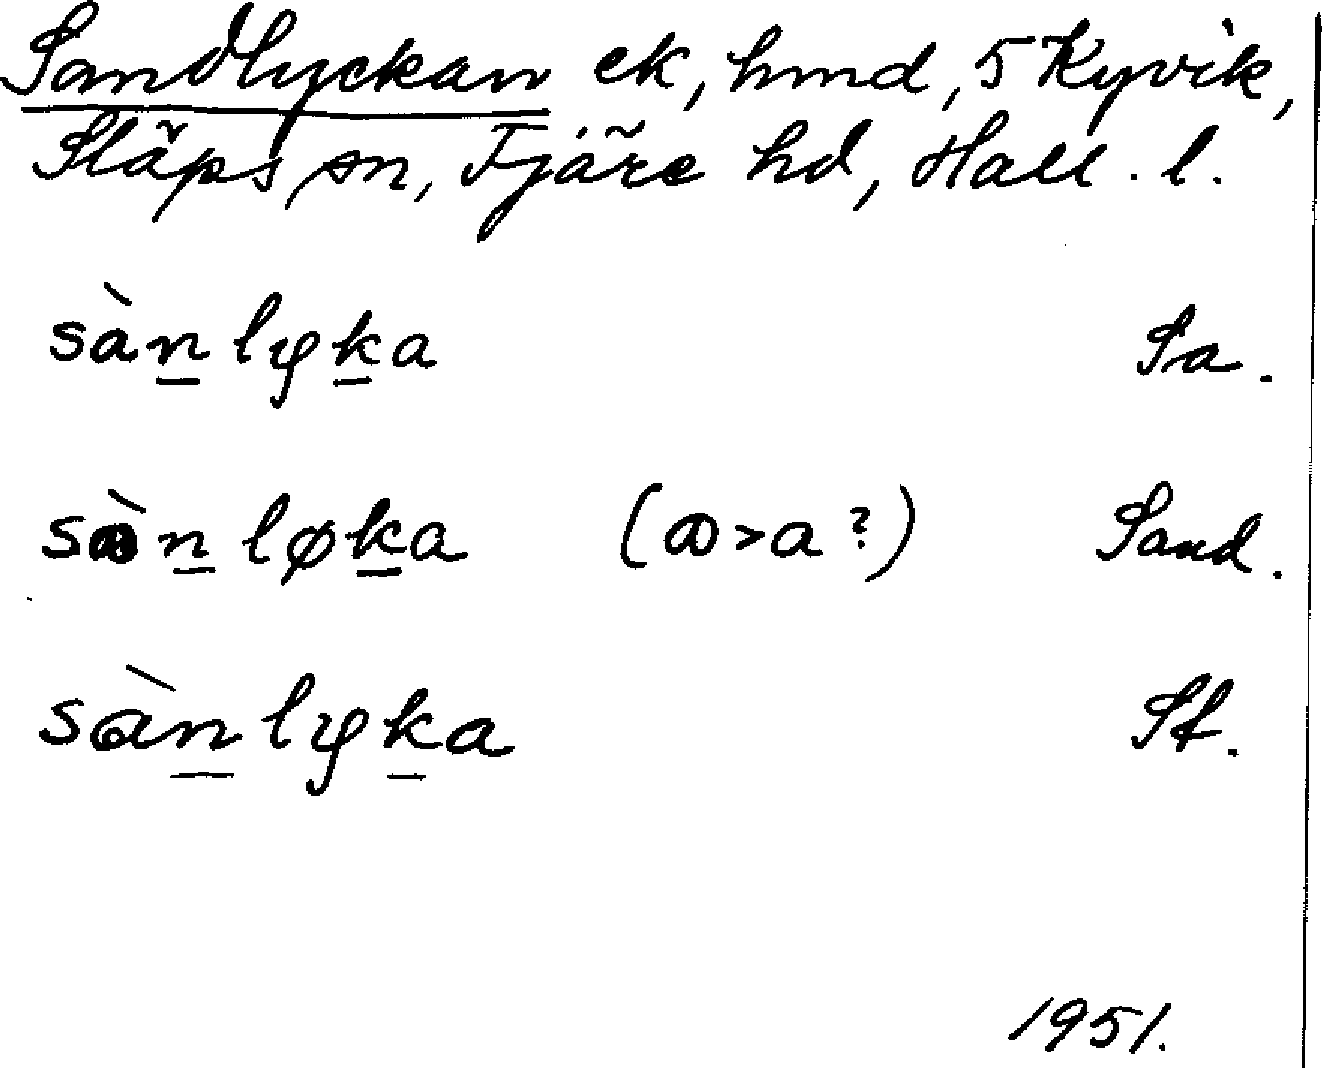 Sandlyckan ek, hmd, 5 Kyvik,
Släps sn, Fjäre hd, Hall. l.
sàn̲lyk̲a Sa.
sàn̲løk̲a (ɷ>a?) Sand.
sàn̲lyk̲a Sf.
1951.